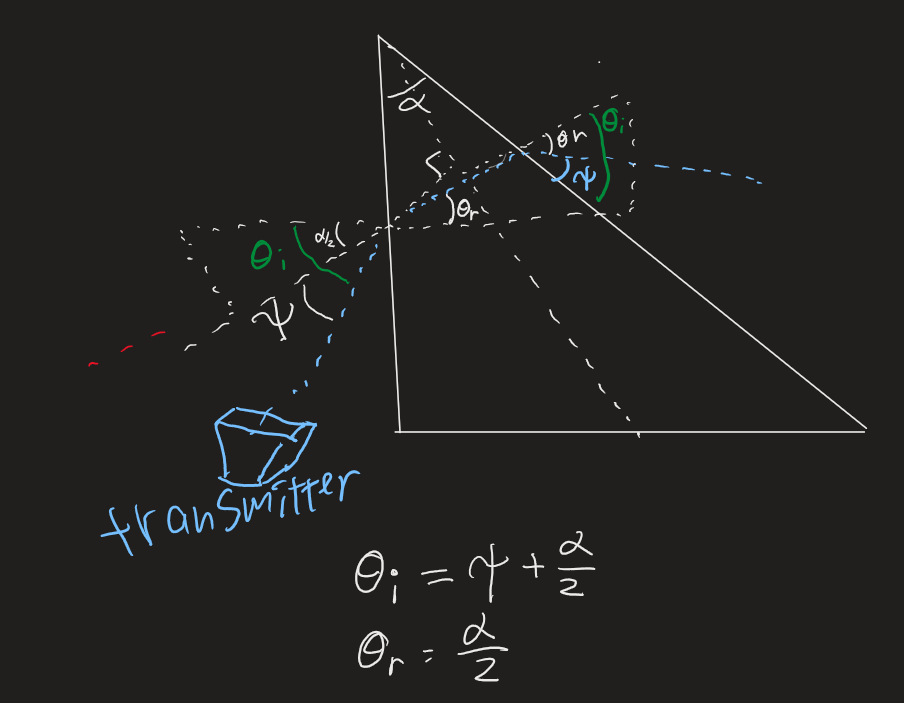 α
θr
θi
ψ
θr
α/2
θi
ψ
transmitter
θi = ψ + α/2
θr = α/2